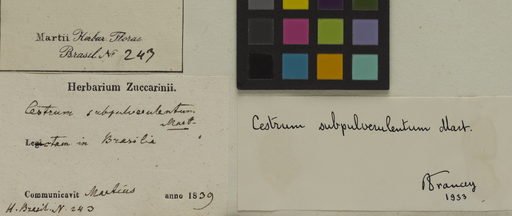 Martii Herbar. Florae
Brasil. No 243
Herbarium Zuccarinii.
Cestrum subpulverulentum
Mart.
Lectam in Brasilia
Communicavit Martius anno 1839
H. Brasil. N. 243
Cestrum subpulverulentum Mart.
Francey
1933